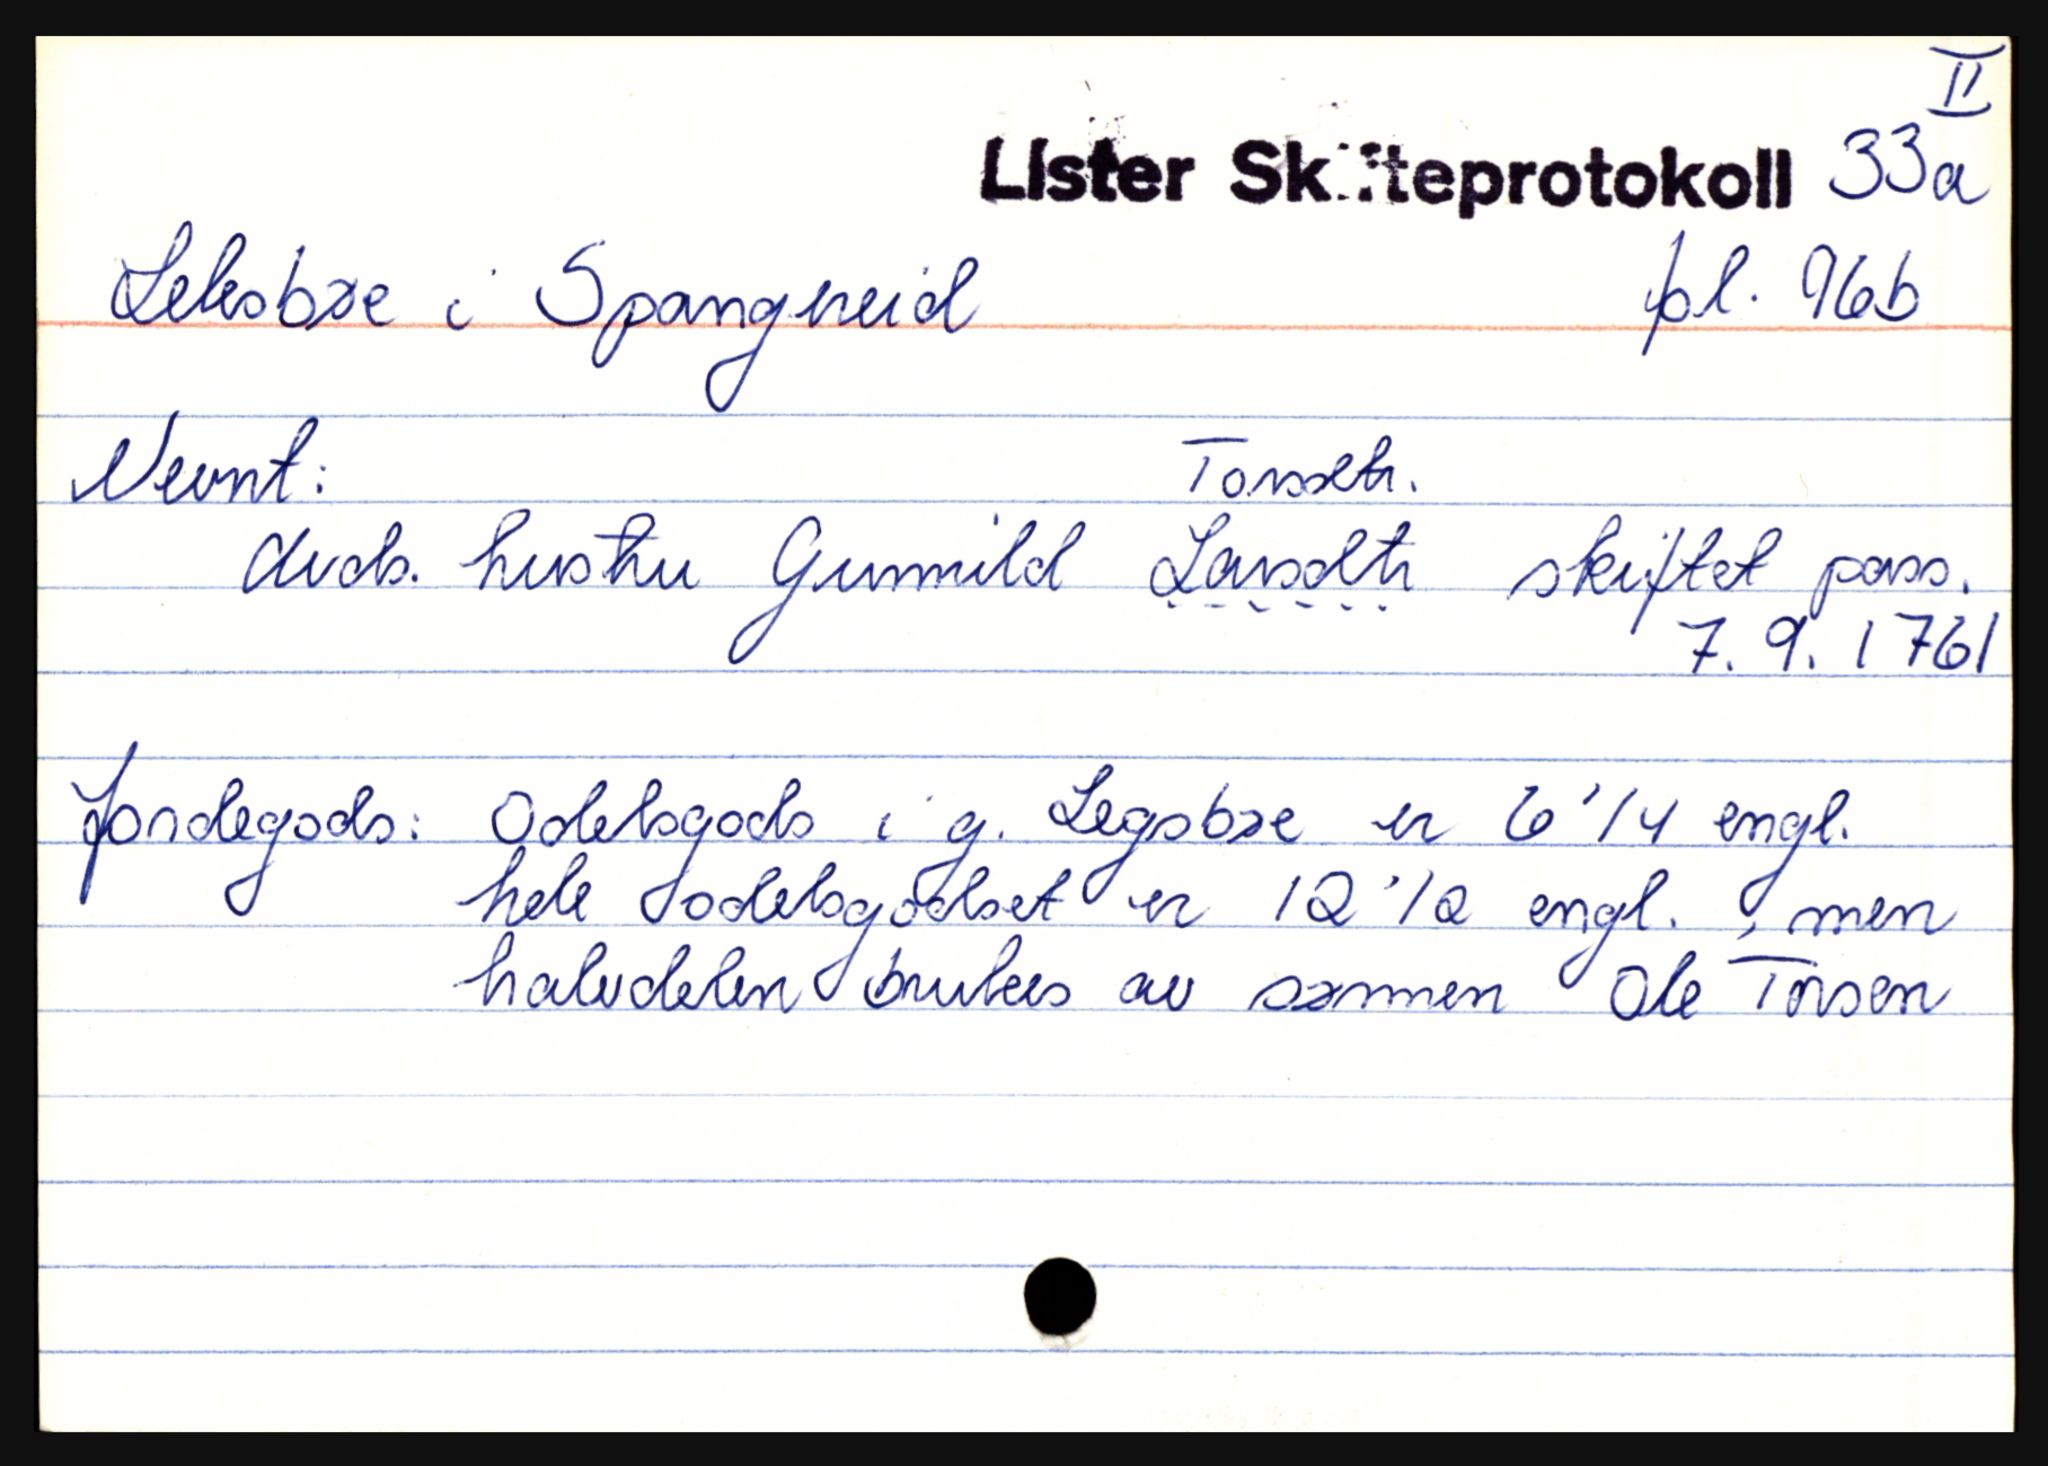 II
Lister Skifteprotokoll 33a
Leksbøe i Spangneid pl. 96b
Nevnt: Torsdtr.
avds. hustru Gunnild Larsdtr skiftet pass.
7. 9. 1761
Jordegods: Odelsgods i g. Legsbøe er 6 1/4 engl.
hele odelsgodset er 12 1/2 engl., men
halvdelen brukes av sønnen Ole Torsen